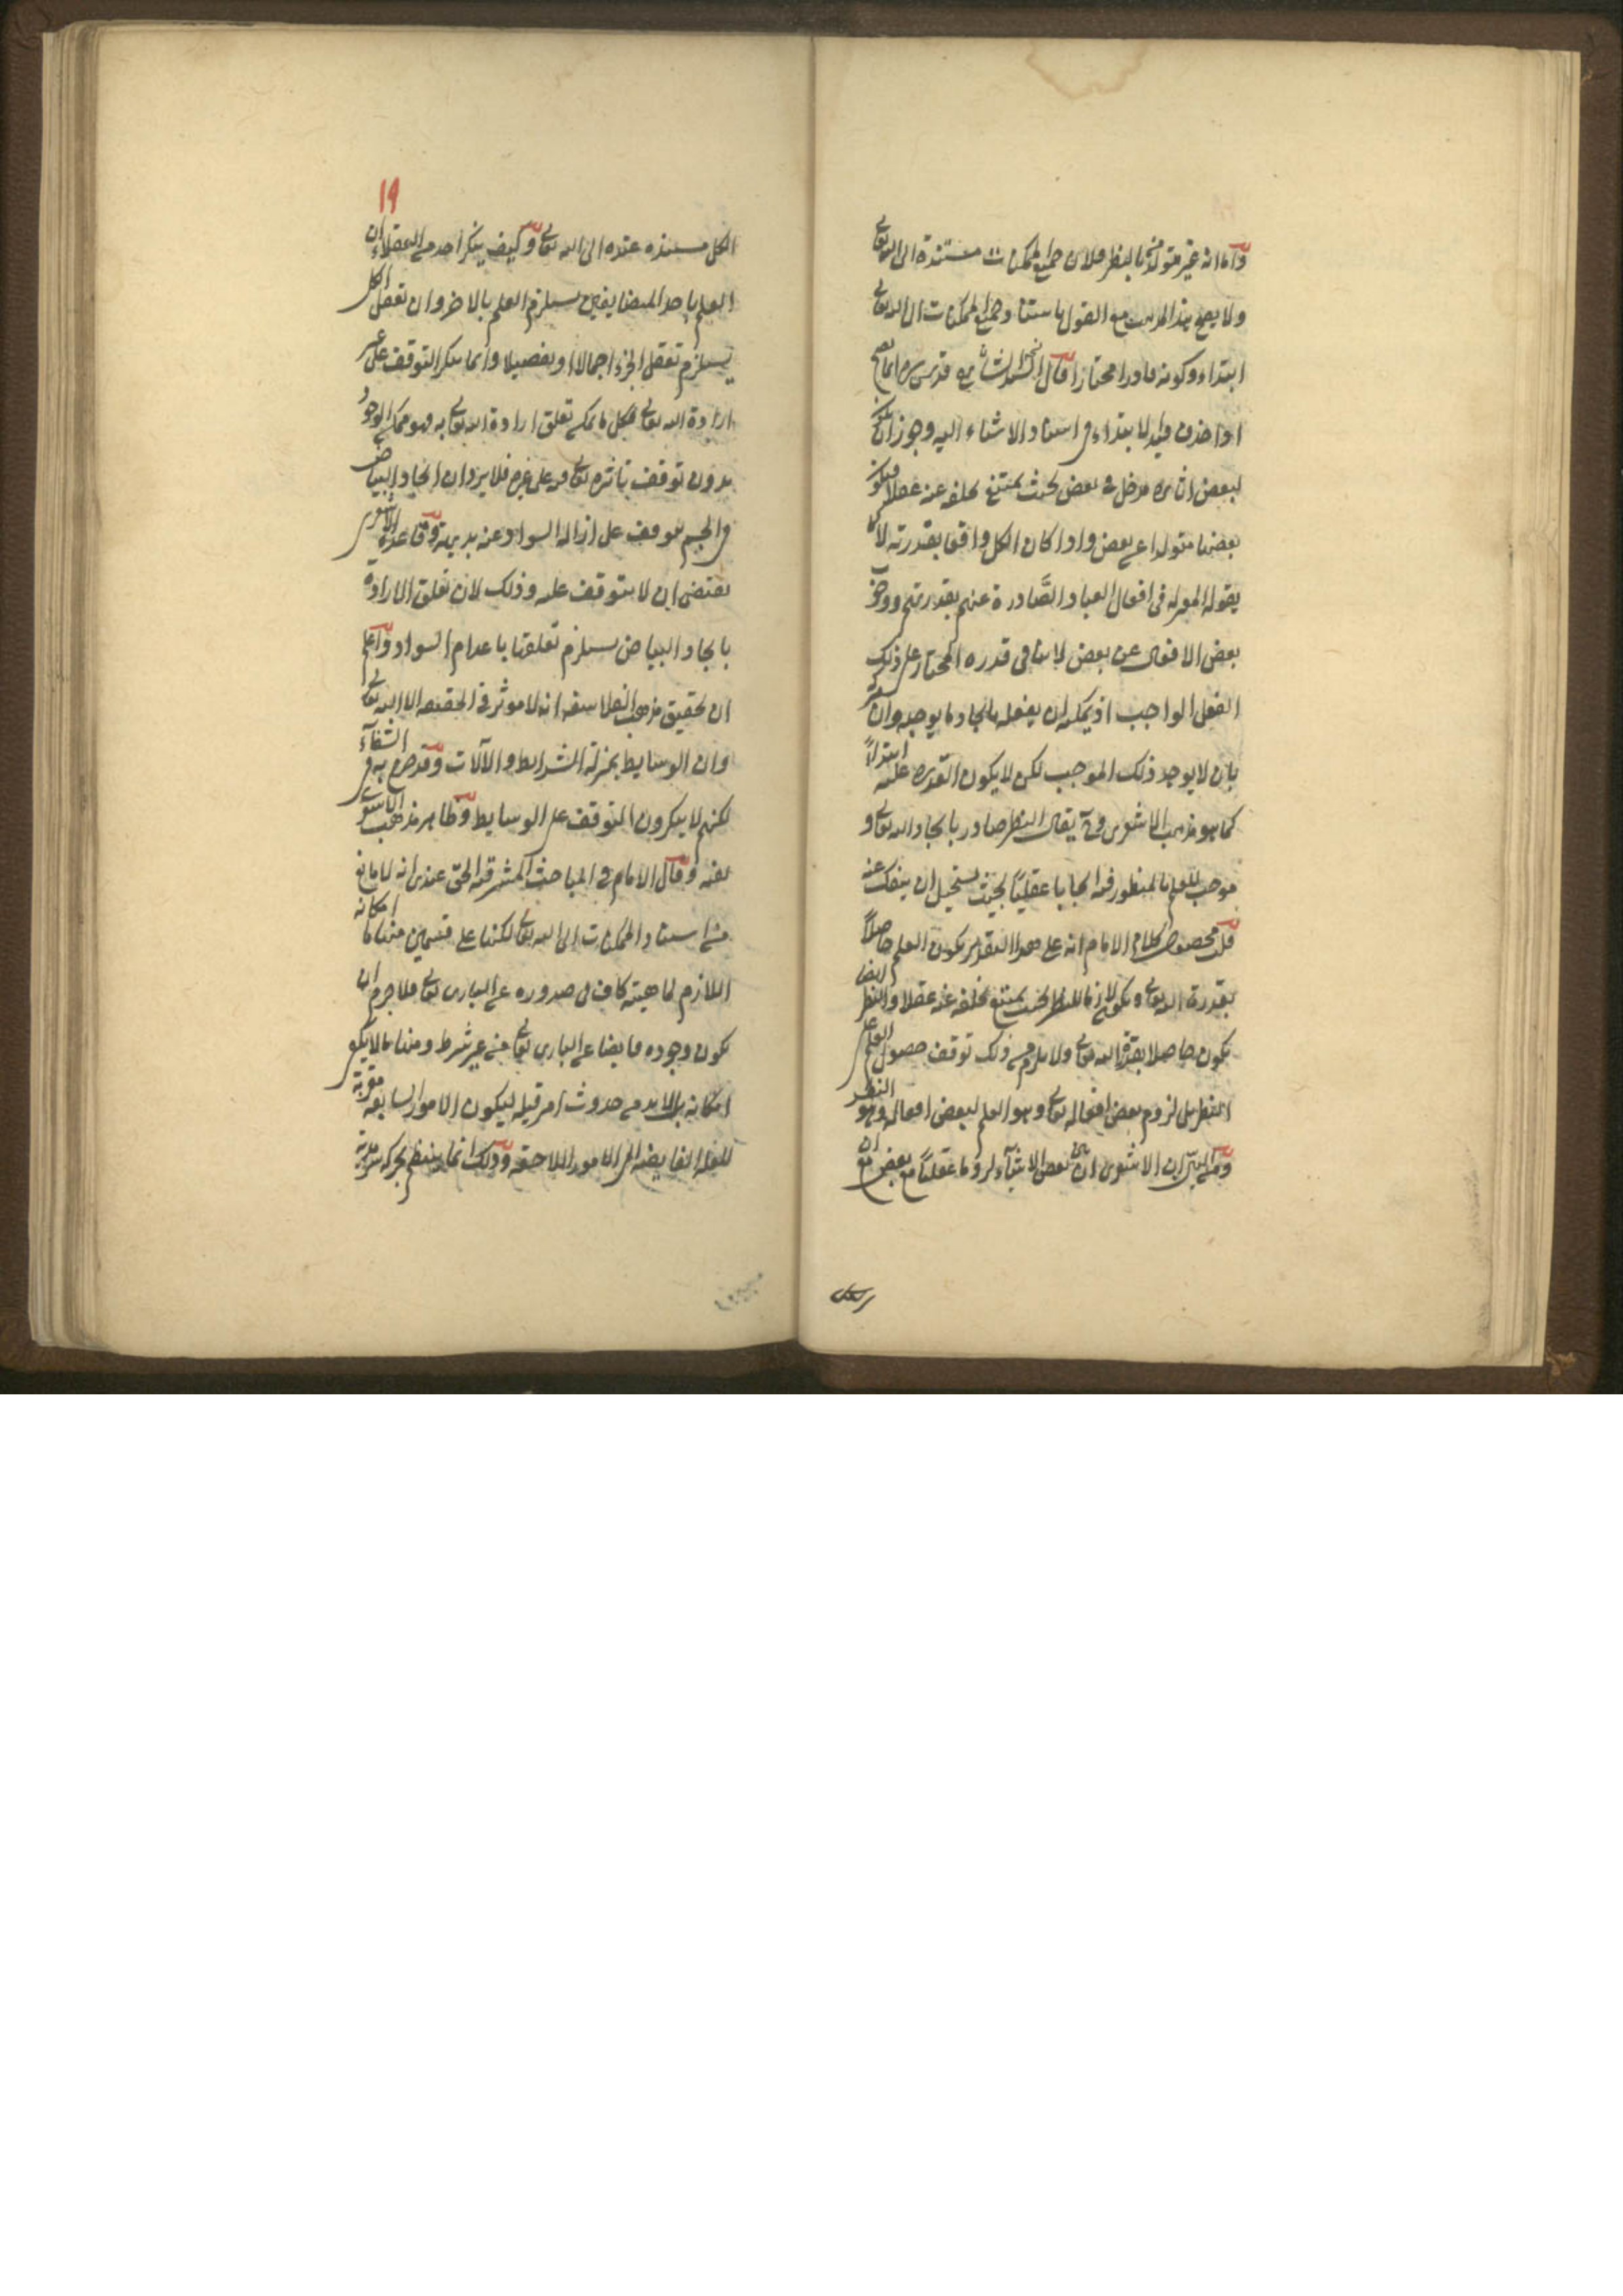 واما انه غير متولد من النظر فلان جميع الممكنات مستندة الى الله تعالى
ولا يصح هذا المذهب مع القول باستناد جميع الممكنات الى الله تعالى
ابتداء وكونه قادرا مختارا قال قدس سره انما يصح
اذا حذف قيد الابتداء في استناد الاشياء اليه وجوز ان يكون
لبعض اثاره مدخل في بعض بحيث يمتنع تخلفه عنه عقلا فيكون
بعضها متولدا عن بعض واذا كان الكل واقعا بقدرته كما
يقوله المعتزلة في افعال العباد الصادرة عنهم بقدرتهم ووجوب
بعض الافعال عن بعض لا ينافي قدرة المختار على ذلك
الفعل الواجب اذ يمكنه ان يفعله بايجاد ما يوجبه وان يتركه
بان لا يوجد ذلك الموجب لكن لا يكون القدرة عليه ابتداءً
كما هو مذهب الاشعري وح يقال النظر صادر بايجاد الله تعالى و
موجب للعلم بالمنظور فيه ايجابا عقليًا بحيث يستحيل ان ينفك عنه
قلت محصول كلام الامام انه على هذا التقدير يكون العلم حاصلاً
بقدرة الله تعالى ويكون لازما للنظر بحيث يمتنع تخلفه عنه عقلا والنظر ايضا
يكون حاصلا بقدرة الله تعالى ولا يلزم من ذلك توقف حصول العلم على
النظر بل لزوم بعض افعاله تعالى وهو العلم لبعض افعاله وهو النظر
ومن البين ان الاشعري ان لبعض الاشياء لزوما عقليًا مع بعض مع ان
الكل مستنده عنده الى الله تعالى وكيف ينكر احد من العقلاء ان
العلم باحد المتضايفين يستلزم العلم بالاخر وان تعقل الكل
يستلزم تعقل الجزء اجمالا او تفصيلا وانما ينكر التوقف على غير
ارادة الله تعالى فكل ما يمكن تعلق ارادة الله تعالى به فهو ممكن الوجود
بدون توقف تاثيره تعالى فيه على غيره فلا يرد ان ايجاد البياض
في الجسم يتوقف على ازالة السواد عنه بديهة وقاعدة الاشعري
يقتضي ان لا يتوقف عليه وذلك لان تعلق الارادة
بايجاد البياض يستلزم تعلقها باعدام السواد واعلم
ان تحقيق مذهب الفلاسفة انه لا موثر في الحقيقة الا الله تعالى
وان الوسايط بمنزلة الشرايط والآلات وقد صرح به في الشفآء
لكنهم لا ينكرون التوقف على الوسايط وظاهر مذهب الاشعري
نفيه وقال الامام في المباحث المشرقية الحق عندي انه لا مانع
من استناد الممكنات الى الله تعالى لكنها على قسمين منها ما امكانه
اللازم لماهيته كاف في صدوره عن الباري تعالى فلا جرم ان
يكون وجوده فايضا عن الباري تعالى من غير شرط ومنها ما لا يكفي
امكانه بل لا بد من حدوث امر قبله ليكون الامور السابقة مقربة
للعلة الفايضة الى الامور اللاحقة وذلك انما ينتظم بحركة سرمدية
١٩